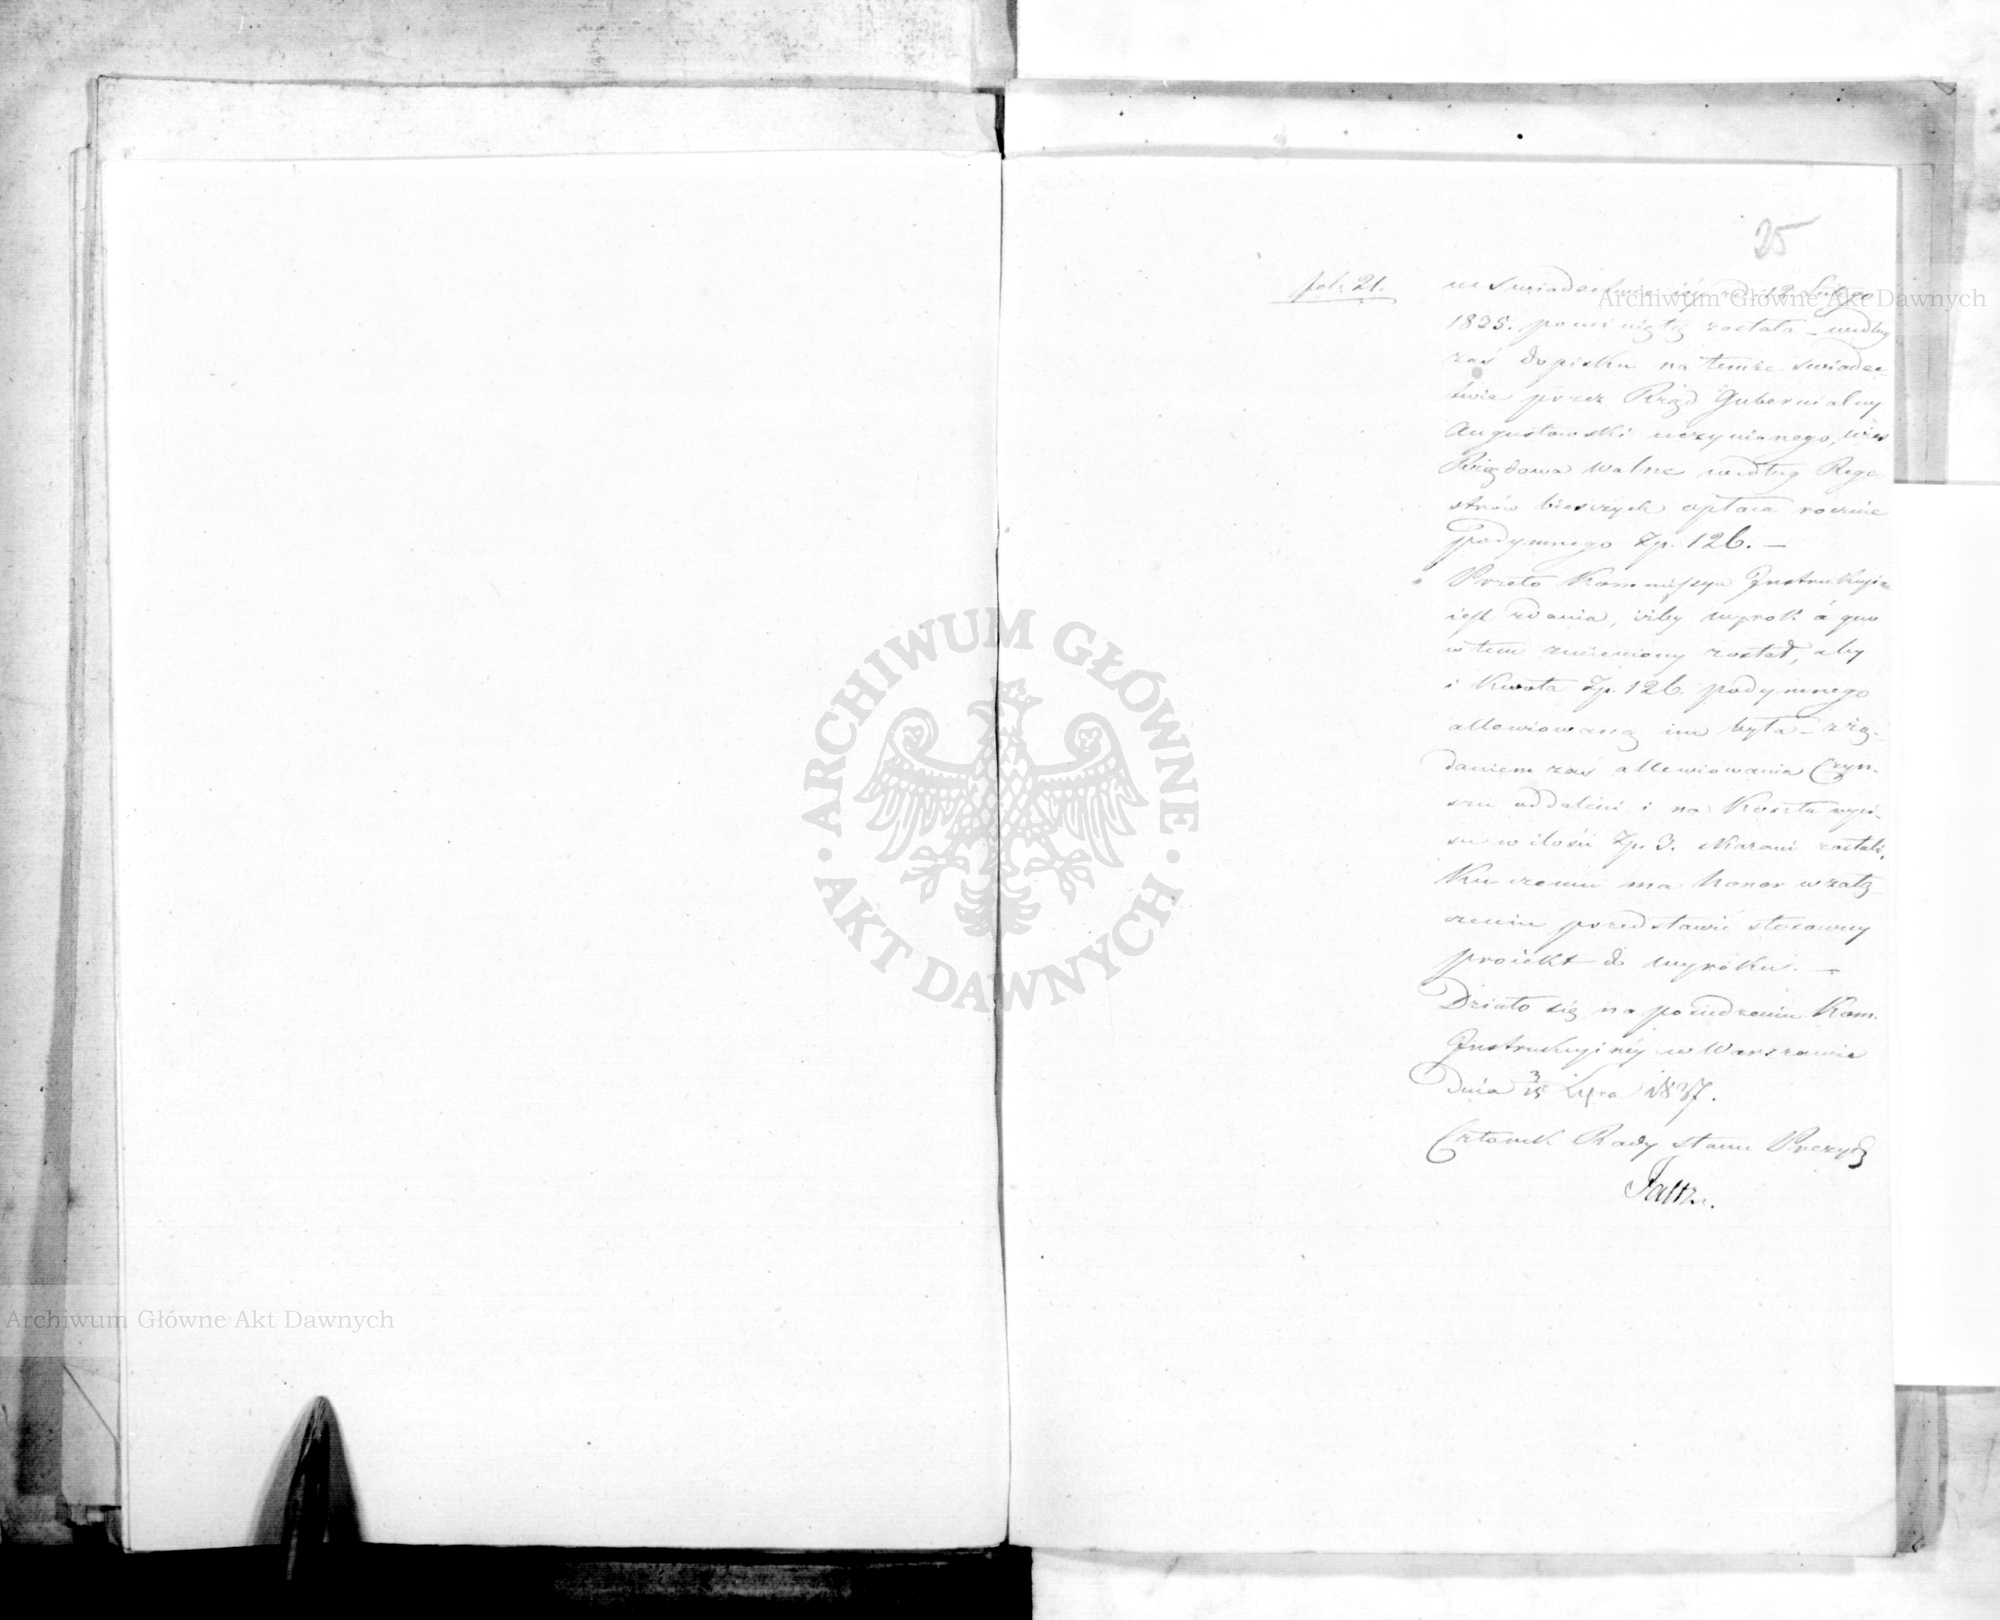 25
fol: 21.
w swiadectwie jey z d. 12 Lutego
1835. pominiętą została – według
zaś dopisku na temże swiadec-
twie przez Rząd Gubernialny
Augustowski uczynionego, wieś
Rządowa Walne według Reje
strów bierczych opłaca rocznie
Podymnego Zp. 126. –
Przeto Kommissya Instrukcyjna
jest zdania, iżby wyrok á quo
w tem zmieniony został, aby
i kwota Zp. 126. podymnego
allewiowaną im była – z żą-
daniem zaś allewiowania Czyn-
szu oddaleni i na koszta wypi-
su w ilości Zp. 3. skazani zostali.
Ku czemu ma honor w załą
czeniu przedstawić stosowny
projekt do wyroku. –
Działo się na posiedzeniu Kom.
Instrukcyjnéj w Warszawie
dnia 3/15 Lipca 1837.
Członek Rady Stanu Prezyd
Faltz.
Archiwum Główne Akt Dawnych
Archiwum Główne Akt Dawnych
ARCHIWUM GŁÓWNE · AKT DAWNYCH ·